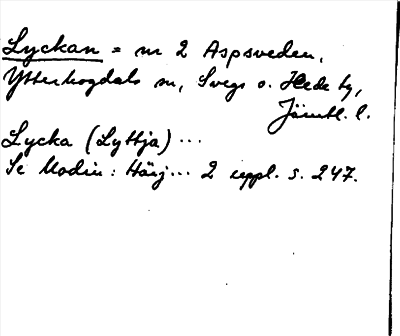 Lyckan = nr 2 Aspsveden,
Ytterhogdals sn, Svegs o. Hede tg,
Jämtl. l.
Lycka (Lyttja) ...
Se Modin: Härj... 2 uppl. s. 247.